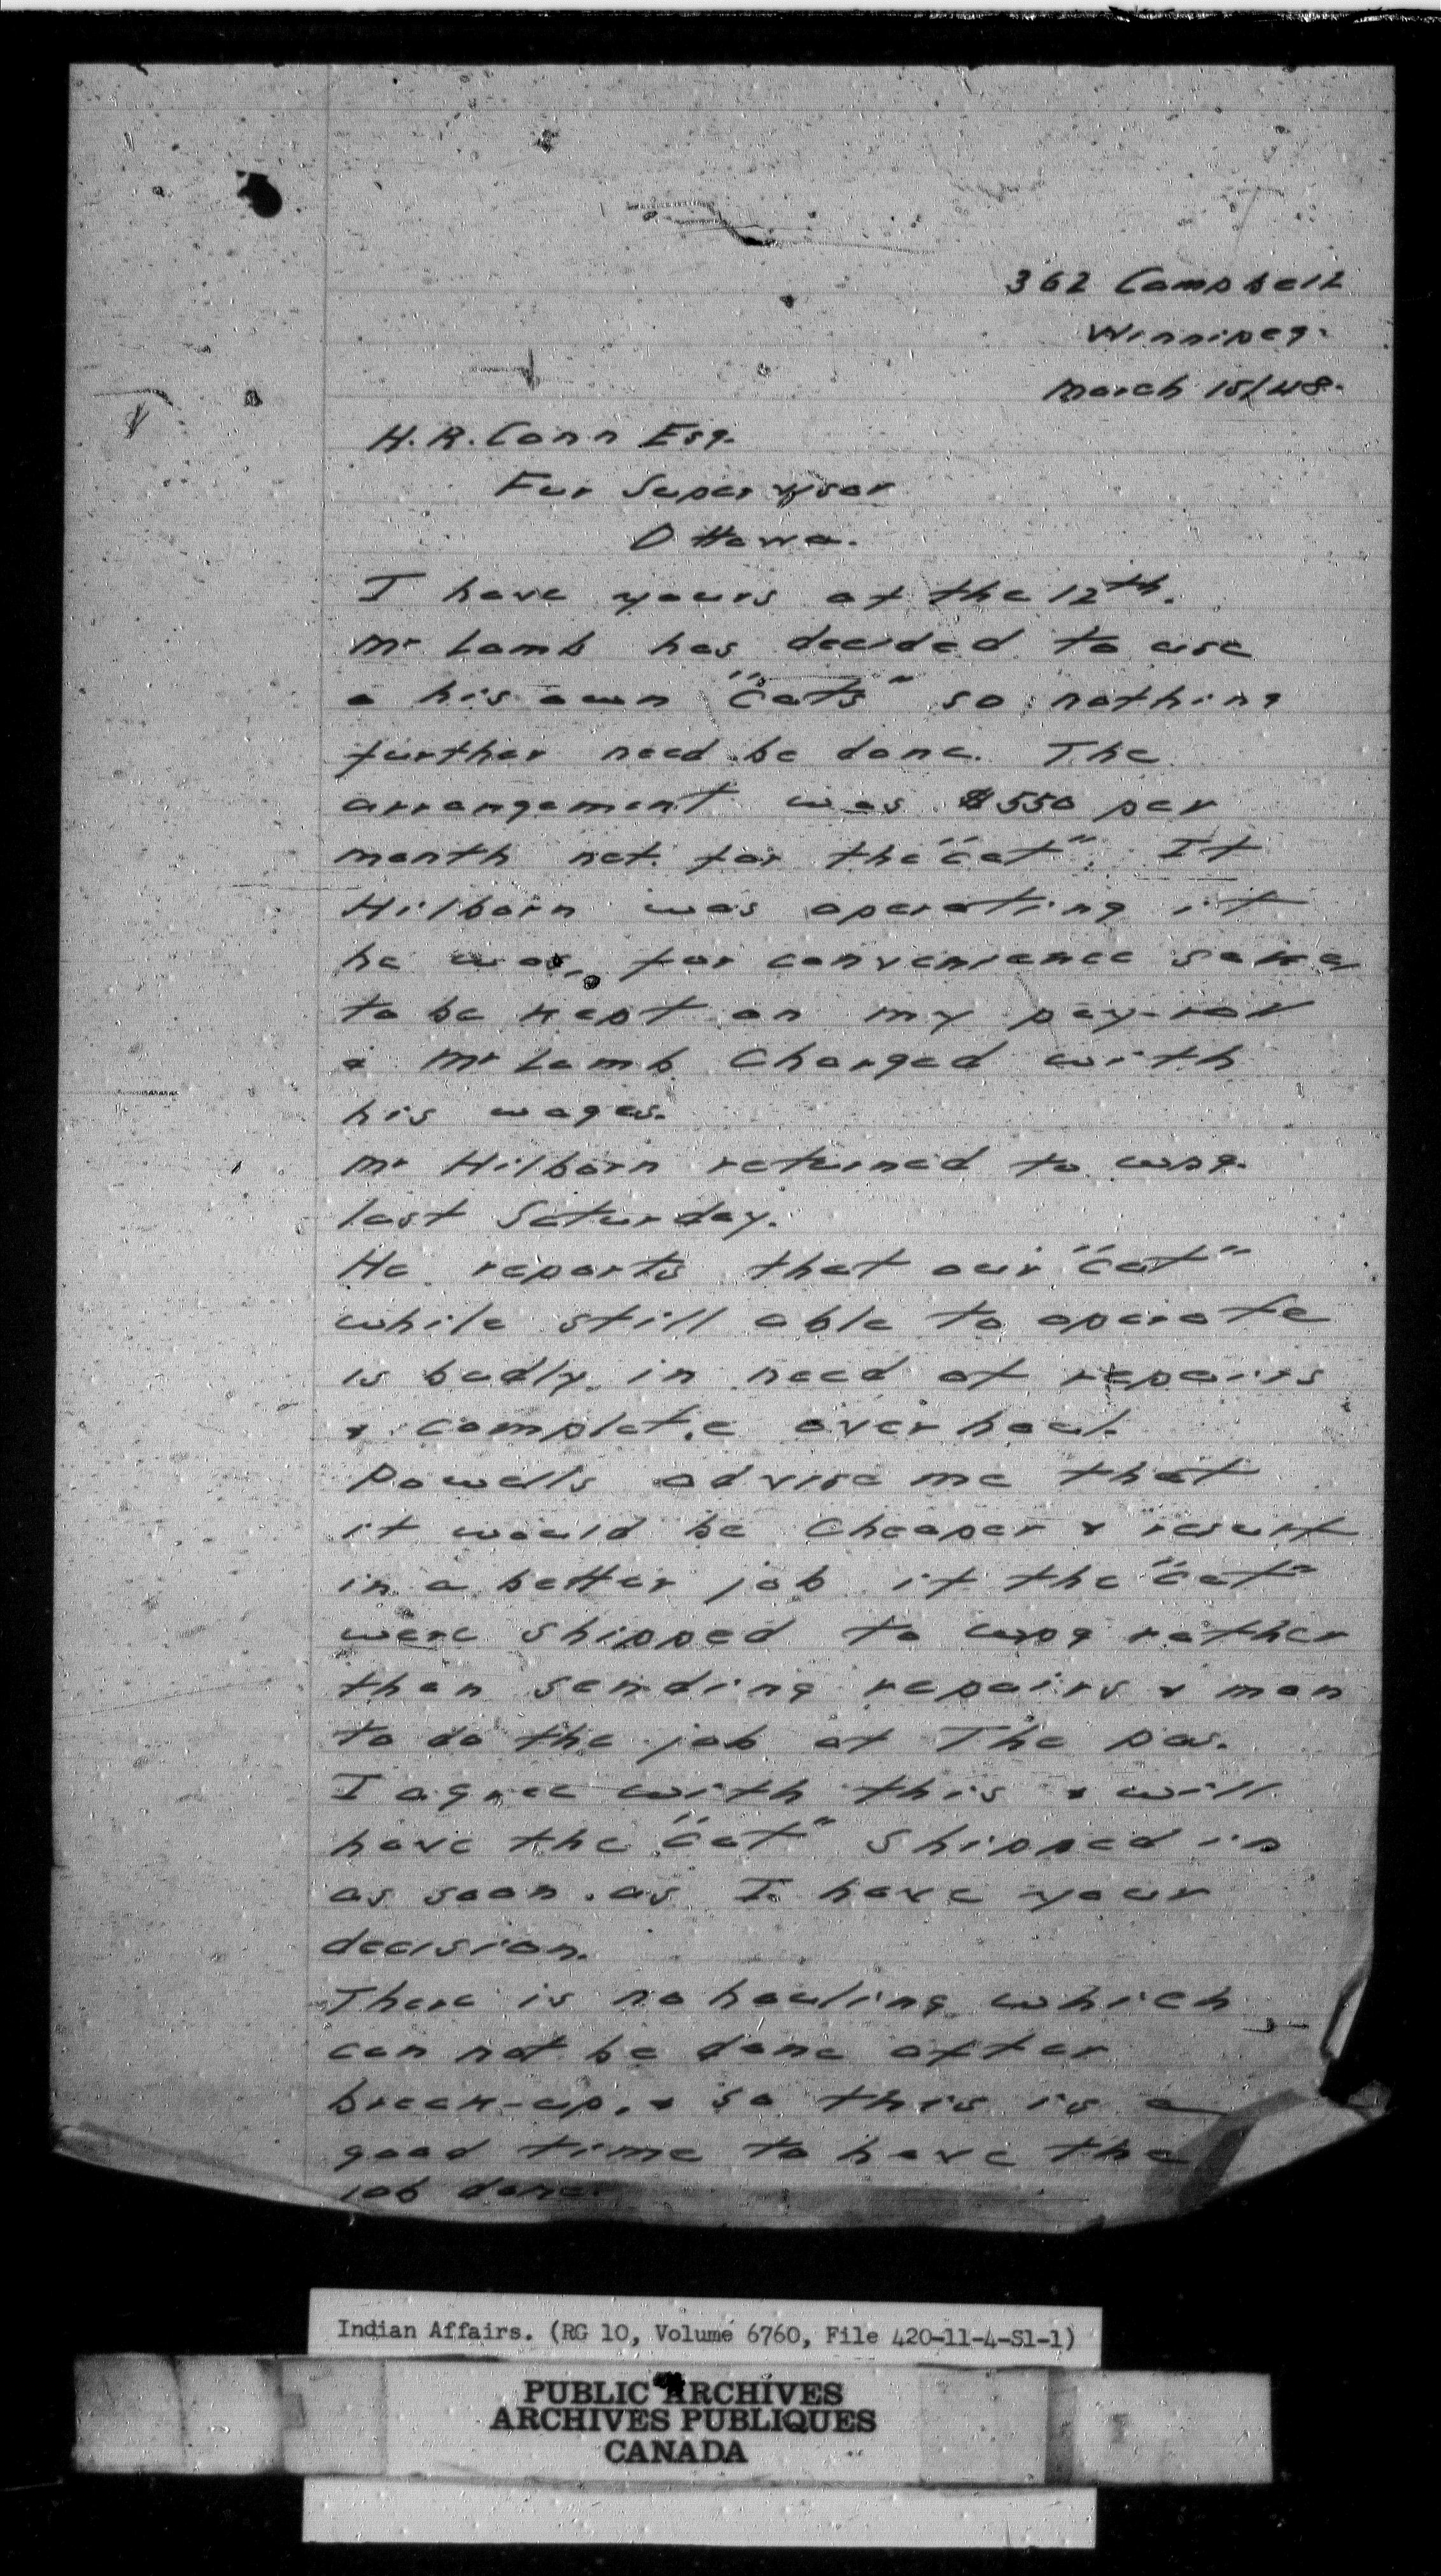 362 Campbell
Winnipeg.
March 15/48.
H. R. Conn Esq.
Fur Supervisor
Ottawa.
I have yours of the 12th.
Mr Lamb has decided to use
a his own "Cats" so nothing
further need be done. The
arrangement was $550 per
month net for the "cat". If
Hilborn was operating it
he was, for convenience sake,
to be kept on my pay-roll
& Mr Lamb Charged with
his wages.
Mr Hilborn returned to wpg.
last Saturday.
He reports that our "Cat"
while still able to operate
is badly in need of repairs
& complete overhaul.
Powells advise me that
it would be Cheaper & result
in a better job if the "Cat"
were Shipped to wpg rather
than sending repairs & man
to do the job at The Pas.
I agree with this & will
have the "Cat" Shipped in
as soon as I have your
decision.
There is no hauling which
can not be done after
break-up, & so this is a
good time to have the
job done.
Indian Affairs. (RG 10, Volume 6760, File 420-11-4-S1-1)
PUBLIC ARCHIVES
ARCHIVES PUBLIQUES
CANADA